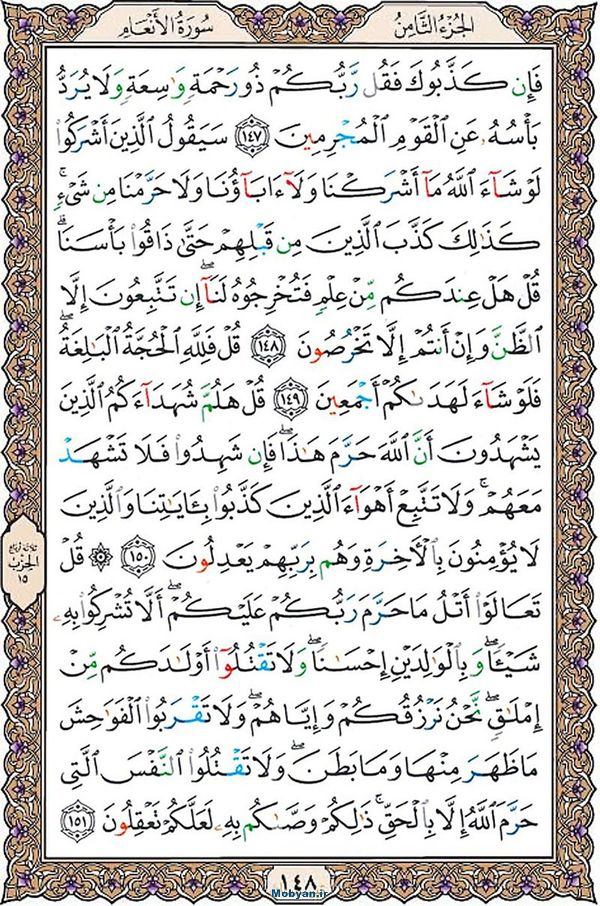 الجُزْءُ الثَّامِنُ
سُورَةُ الأَنْعَامِ
فَإِن كَذَّبُوكَ فَقُل رَّبُّكُمْ ذُو رَحْمَةٍ وَٰسِعَةٍ وَلَا يُرَدُّ
بَأْسُهُۥ عَنِ ٱلْقَوْمِ ٱلْمُجْرِمِينَ ١٤٧ سَيَقُولُ ٱلَّذِينَ أَشْرَكُوا۟
لَوْ شَآءَ ٱللَّهُ مَآ أَشْرَكْنَا وَلَآ ءَابَآؤُنَا وَلَا حَرَّمْنَا مِن شَىْءٍ ۚ
كَذَٰلِكَ كَذَّبَ ٱلَّذِينَ مِن قَبْلِهِمْ حَتَّىٰ ذَاقُوا۟ بَأْسَنَا ۗ
قُلْ هَلْ عِندَكُم مِّنْ عِلْمٍ فَتُخْرِجُوهُ لَنَآ ۖ إِن تَتَّبِعُونَ إِلَّا
ٱلظَّنَّ وَإِنْ أَنتُمْ إِلَّا تَخْرُصُونَ ١٤٨ قُلْ فَلِلَّهِ ٱلْحُجَّةُ ٱلْبَٰلِغَةُ ۖ
فَلَوْ شَآءَ لَهَدَىٰكُمْ أَجْمَعِينَ ١٤٩ قُلْ هَلُمَّ شُهَدَآءَكُمُ ٱلَّذِينَ
يَشْهَدُونَ أَنَّ ٱللَّهَ حَرَّمَ هَٰذَا ۖ فَإِن شَهِدُوا۟ فَلَا تَشْهَدْ
مَعَهُمْ ۚ وَلَا تَتَّبِعْ أَهْوَآءَ ٱلَّذِينَ كَذَّبُوا۟ بِـَٔايَٰتِنَا وَٱلَّذِينَ
لَا يُؤْمِنُونَ بِٱلْـَٔاخِرَةِ وَهُم بِرَبِّهِمْ يَعْدِلُونَ ١٥٠ ۞ قُلْ
تَعَالَوْا۟ أَتْلُ مَا حَرَّمَ رَبُّكُمْ عَلَيْكُمْ ۖ أَلَّا تُشْرِكُوا۟ بِهِۦ
شَيْـًٔا ۖ وَبِٱلْوَٰلِدَيْنِ إِحْسَٰنًا ۖ وَلَا تَقْتُلُوٓا۟ أَوْلَٰدَكُم مِّنْ
إِمْلَٰقٍ ۖ نَّحْنُ نَرْزُقُكُمْ وَإِيَّاهُمْ ۖ وَلَا تَقْرَبُوا۟ ٱلْفَوَٰحِشَ
مَا ظَهَرَ مِنْهَا وَمَا بَطَنَ ۖ وَلَا تَقْتُلُوا۟ ٱلنَّفْسَ ٱلَّتِى
حَرَّمَ ٱللَّهُ إِلَّا بِٱلْحَقِّ ۚ ذَٰلِكُمْ وَصَّىٰكُم بِهِۦ لَعَلَّكُمْ تَعْقِلُونَ ١٥١
ثلاثة أرباع
الحزب
١٥
١٤٨
Mobyan.ir